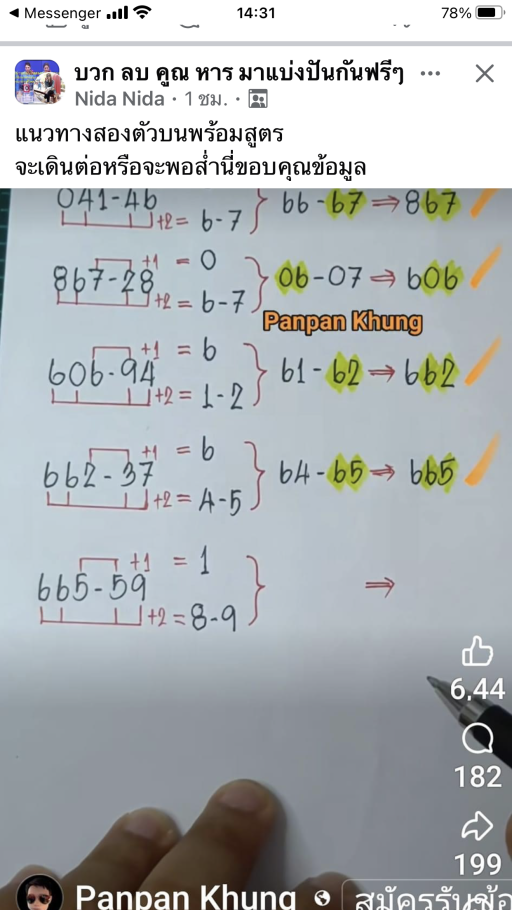 Messenger 14:31 78%
บวก ลบ คูณ หาร มาแบ่งปันกันฟรีๆ
Nida Nida · 1 ชม. ·
แนวทางสองตัวบนพร้อมสูตร
จะเดินต่อหรือจะพอส่ำนี่ขอบคุณข้อมูล
041-46 +2= 6-7 } 66-67 ⇒ 867
+1 = 0
867-28 } 06-07 ⇒ 606
+2 = 6-7
Panpan Khung
+1 = 6
606-94 } 61-62 ⇒ 662
+2 = 1-2
+1 = 6
662-37 } 64-65 ⇒ 665
+2 = 4-5
+1 = 1
665-59 } ⇒
+2 = 8-9
6,44
182
199
Panpan Khung สมัครรับข้อ